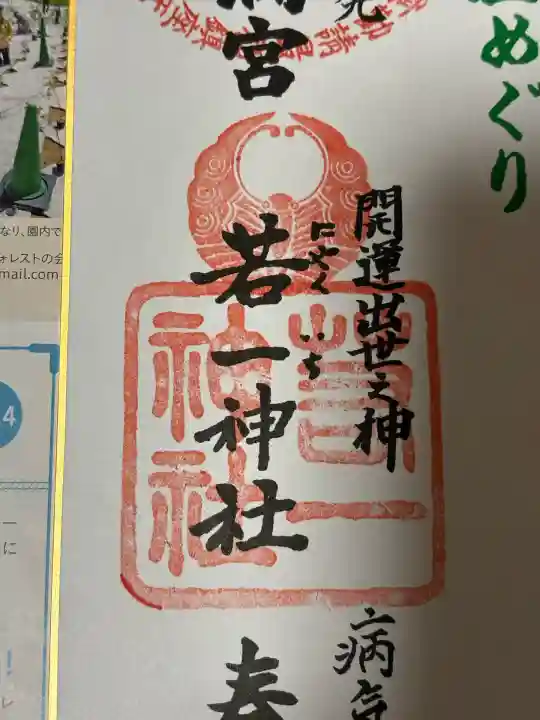 めぐり
開運出世之神
にゃくいち
若一神社
若一
神社
宮
病
春
なり、園内で
ォレストの会
mail.com
4
ー
に
！
レ